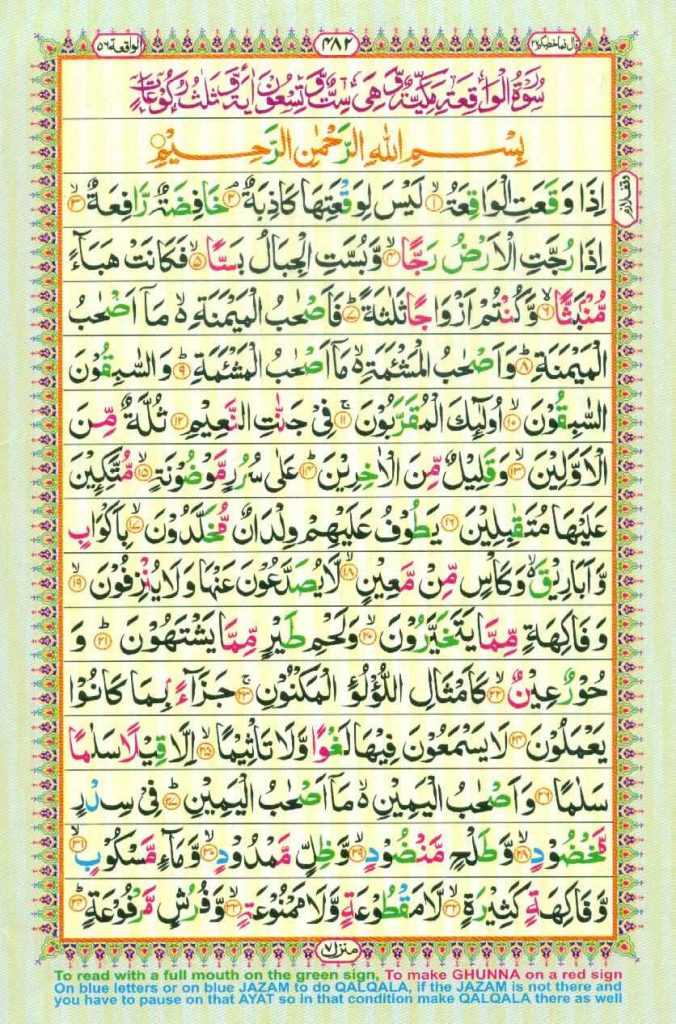 قال فما خطبکم ٢٧ ٤٨٢ الواقعة ٥٦
سُوْرَةُ الْوَاقِعَةِ مَكِّيَّةٌ وَّهِيَ سِتٌّ وَّتِسْعُوْنَ اٰيَةً وَّثَلٰثُ رُكُوْعَاتٍ
بِسْمِ اللّٰهِ الرَّحْمٰنِ الرَّحِيْمِ
اِذَا وَقَعَتِ الْوَاقِعَةُ ۙ﴿١﴾ لَيْسَ لِوَقْعَتِهَا كَاذِبَةٌ ۘ﴿٢﴾ خَافِضَةٌ رَّافِعَةٌ ۙ﴿٣﴾
اِذَا رُجَّتِ الْاَرْضُ رَجًّا ۙ﴿٤﴾ وَّبُسَّتِ الْجِبَالُ بَسًّا ۙ﴿٥﴾ فَكَانَتْ هَبَآءً
مُّنْۢبَثًّا ۙ﴿٦﴾ وَّكُنْتُمْ اَزْوَاجًا ثَلٰثَةً ؕ﴿٧﴾ فَاَصْحٰبُ الْمَيْمَنَةِ ۙ مَاۤ اَصْحٰبُ
الْمَيْمَنَةِ ؕ﴿٨﴾ وَاَصْحٰبُ الْمَشْـَٔمَةِ ۙ مَاۤ اَصْحٰبُ الْمَشْـَٔمَةِ ؕ﴿٩﴾ وَالسّٰبِقُوْنَ
السّٰبِقُوْنَ ۙ﴿١٠﴾ اُولٰٓئِكَ الْمُقَرَّبُوْنَ ۚ﴿١١﴾ فِيْ جَنّٰتِ النَّعِيْمِ ﴿١٢﴾ ثُلَّةٌ مِّنَ
الْاَوَّلِيْنَ ۙ﴿١٣﴾ وَقَلِيْلٌ مِّنَ الْاٰخِرِيْنَ ؕ﴿١٤﴾ عَلٰى سُرُرٍ مَّوْضُوْنَةٍ ۙ﴿١٥﴾ مُّتَّكِـِٕيْنَ
عَلَيْهَا مُتَقٰبِلِيْنَ ﴿١٦﴾ يَطُوْفُ عَلَيْهِمْ وِلْدَانٌ مُّخَلَّدُوْنَ ۙ﴿١٧﴾ بِاَكْوَابٍ
وَّاَبَارِيْقَ ۙ وَكَاْسٍ مِّنْ مَّعِيْنٍ ۙ﴿١٨﴾ لَّا يُصَدَّعُوْنَ عَنْهَا وَلَا يُنْزِفُوْنَ ۙ﴿١٩﴾
وَفَاكِهَةٍ مِّمَّا يَتَخَيَّرُوْنَ ۙ﴿٢٠﴾ وَلَحْمِ طَيْرٍ مِّمَّا يَشْتَهُوْنَ ؕ﴿٢١﴾ وَ
حُوْرٌ عِيْنٌ ۙ﴿٢٢﴾ كَاَمْثَالِ اللُّؤْلُؤِ الْمَكْنُوْنِ ۚ﴿٢٣﴾ جَزَآءًۢ بِمَا كَانُوْا
يَعْمَلُوْنَ ﴿٢٤﴾ لَا يَسْمَعُوْنَ فِيْهَا لَغْوًا وَّلَا تَاْثِيْمًا ۙ﴿٢٥﴾ اِلَّا قِيْلًا سَلٰمًا
سَلٰمًا ﴿٢٦﴾ وَاَصْحٰبُ الْيَمِيْنِ ۙ مَاۤ اَصْحٰبُ الْيَمِيْنِ ؕ﴿٢٧﴾ فِيْ سِدْرٍ
مَّخْضُوْدٍ ۙ﴿٢٨﴾ وَّطَلْحٍ مَّنْضُوْدٍ ۙ﴿٢٩﴾ وَّظِلٍّ مَّمْدُوْدٍ ۙ﴿٣٠﴾ وَّمَآءٍ مَّسْكُوْبٍ ۙ﴿٣١﴾
وَّفَاكِهَةٍ كَثِيْرَةٍ ۙ﴿٣٢﴾ لَّا مَقْطُوْعَةٍ وَّلَا مَمْنُوْعَةٍ ۙ﴿٣٣﴾ وَّفُرُشٍ مَّرْفُوْعَةٍ ؕ﴿٣٤﴾
منزل ٧
To read with a full mouth on the green sign, To make GHUNNA on a red sign
On blue letters or on blue JAZAM to do QALQALA, if the JAZAM is not there and
you have to pause on that AYAT so in that condition make QALQALA there as well